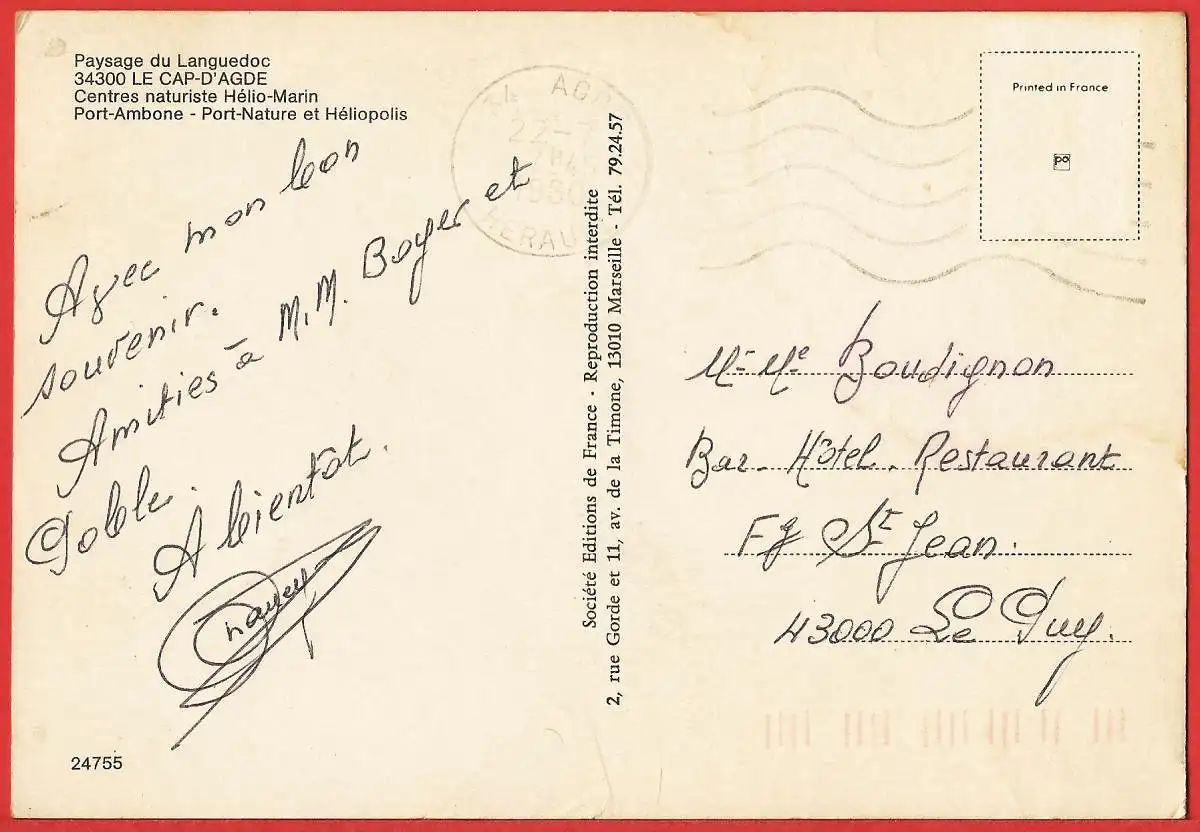 Paysage du Languedoc
34300 LE CAP-D'AGDE
Centres naturiste Hélio-Marin
Port-Ambone - Port-Nature et Héliopolis
Avec mon bon
souvenir.
Amitiés à M.M. Boyer et
A bientot.
24755
Société Editions de France - Reproduction interdite
2, rue Gorde et 11, av. de la Timone, 13010 Marseille - Tél. 79.24.57
34 AGDE
7H45
HERAULT
Printed in France
po
Mr Me Boudignon
Bar. Hôtel. Restaurant
Fg St Jean.
43000 Le Puy.